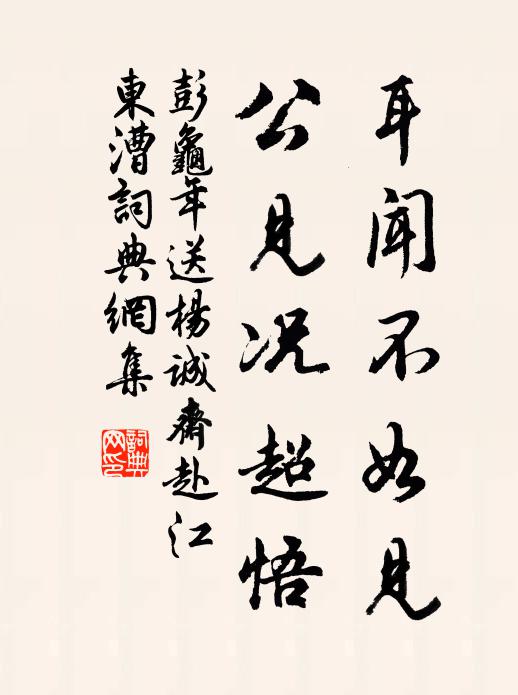 耳聞不如見
公見況超悟
彭龜年送楊誠齋赴江
東漕詞典網集
詞典
网印